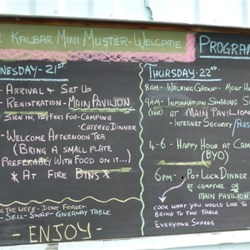 KALBAR MINI MUSTER - WELCOME
PROGRAM
NESDAY - 21ST
- ARRIVAL & SET UP
- REGISTRATION - MAIN PAVILION
SIGN IN, PAY FEES FOR - CAMPING
- CATERED DINNER
- WELCOME AFTERNOON TEA
(BRING A SMALL PLATE
PREFERABLY WITH FOOD ON IT...)
* AT FIRE BINS *
THE WEEK - DON'T FORGET
- SELL - SWAP - GIVEAWAY TABLE
- ENJOY -
THURSDAY - 22ND
8AM - WALKING GROUP -
9AM - INFORMATION SHARING
AT MAIN PAVILION
- INTERNET SECURITY /
4-6 - HAPPY HOUR AT CAMP
(BYO)
6PM - POT LUCK DINNER
AT CAMPFIRE OR
MAIN PAVILION
COOK WHAT YOU WOULD LIKE TO
BRING TO THE TABLE
EVERYONE SHARES